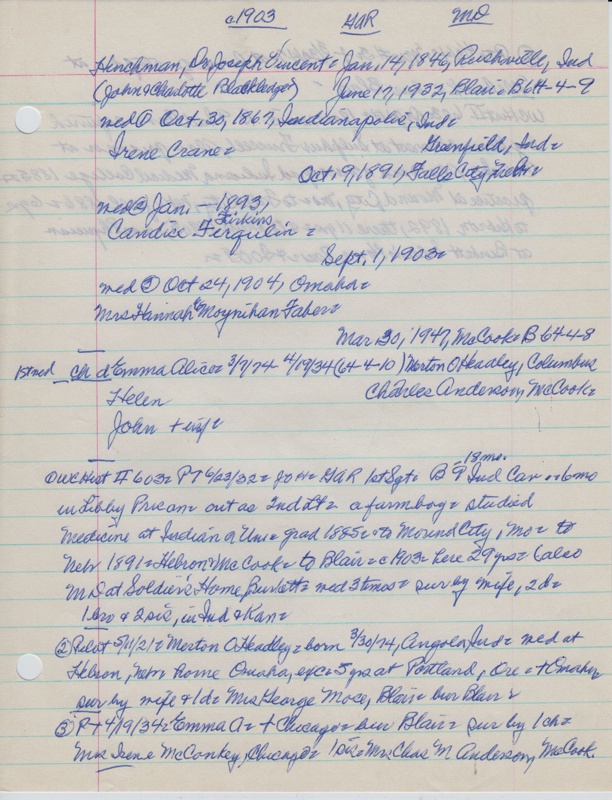 c1903 GAR MD
Henchman, Dr Joseph Vincent = Jan. 14, 1846, Rushville, Ind
(John & Charlotte Blackledge) June 17, 1932, Blair = B 64-4-9
med ① Oct. 30, 1867, Indianapolis, Ind =
Irene Crane = Greenfield, Ind =
Oct. 9, 1891, Falls City, Nebr =
med ② Jan. — 1893,
Firkins
Candise Fergulin =
Sept. 1, 1903 =
med ③ Oct 24, 1904, Omaha =
Mrs Hannah Moynihan Faber =
Mar 30, 1947, McCook = B 64-4-8
1st med Ch d Emma Alice = 3/7/74 - 4/19/34 (64-4-10) Merton O Headley, Columbus
Helen Charles Anderson, McCook =
John + inf =
18 mo.
OWC Hist II 603 = PT 6/23/32 = GAR 1st Sgt = B 9 Ind Cav = 6 mo
in Libby Prison = out as 2nd Lt = a farm boy = studied
Medicine at Indiana Univ = grad 1885 = to Mound City, Mo = to
Nebr 1891 = Hebron & McCook = to Blair = c1903 = here 29 yrs = (also
MD at Soldier's Home, Burkett = med 3 times = sur by wife, 2d =
1 bro & 2 sis, in Ind & Kan =
② Pilot 5/11/21 = Merton O Headley = born 3/30/74, Angola, Ind = med at
Hebron, Nebr home Omaha, exc = 5 yrs at Portland, Ore = + Omaha
sur by wife & 1d = Mrs George Moce, Blair = bur Blair =
③ P + 4/19/34 = Emma A = + Chicago = bur Blair = sur by 1 ch =
Mrs Irene McConkey, Chicago = 1 sis = Mrs Chas M. Anderson, McCook.